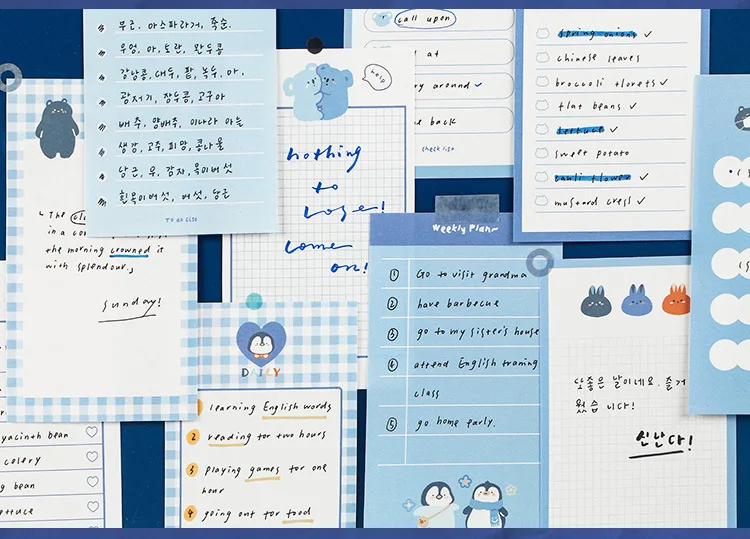 아스파라거, 죽순.
우엉, 아, 토란, 완두콩
강낭콩, 대두, 팥, 녹두, 마,
광저기, 잠두콩, 고구마
배추, 양배추, 마늘
생강, 고추, 피망, 콩나물
당근, 우, 감자, 목이버섯
흰목이버섯, 버섯, 당근
To do list
The
in a
the morning crowned is
with splendour.
sunday!
help
nothing
to
lose!
come
on!
call upon
at
ry around
back
check list
spring onions
chinese leaves
broccoli florets
flat beans
lettuce
sweet potato
cauli flower
mustard cress
Weekly Plan~
① Go to visit grandma
② have barbecue
③ go to my sister's house
④ attend English traning
class
⑤ go home early.
DAILY
1 learning English words
2 reading for two hours
3 playing games for one
hour
4 going out for food
yacinth bean
celery
g bean
ettuce
또좋은 날이네요. 즐거
웠습니다!
신난다!